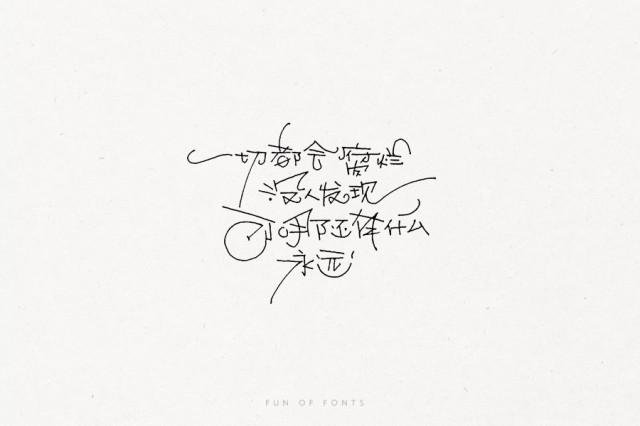 一切都会腐烂
没人发现
还 什么
永远
FUN OF FONTS